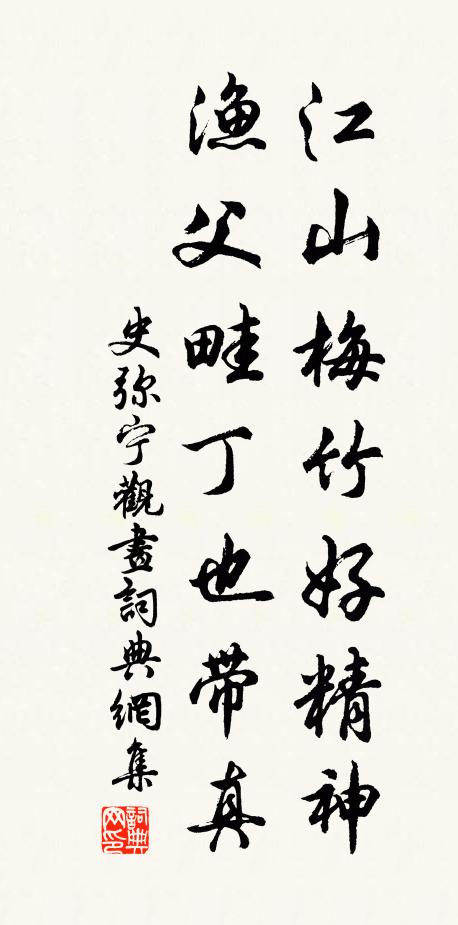 江山梅竹好精神
漁父畦丁也带真
史弥宁觀畫詞典網集
詞典网印